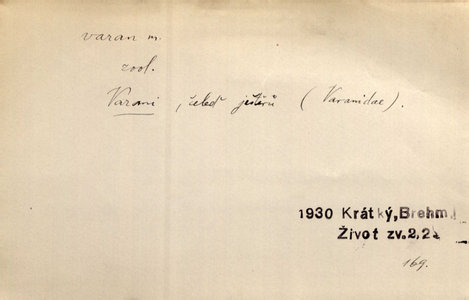 varan m.
zool.
Varani, čeleď ještěrů (Varanidae).
1930 Krátký, Brehm,
Život zv.2,2.
169.